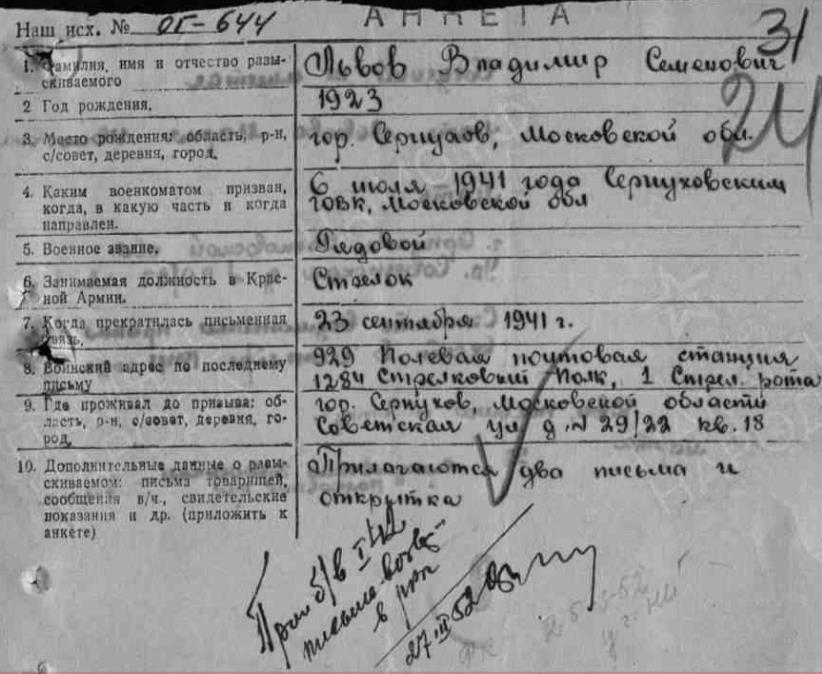 АНКЕТА
31
Наш исх. № ОГ-644
24
1. Фамилия, имя и отчество разы-
скиваемого
Львов Владимир Семенович
2 Год рождения.
1923
3. Место рождения: область, р-н,
с/совет, деревня, город.
гор. Серпухов, Московской обл.
4. Каким военкоматом призван,
когда, в какую часть и когда
направлен.
6 июля 1941 года Серпуховским
ГОВК, Московской обл
5. Военное звание.
Рядовой
6. Занимаемая должность в Крас-
ной Армии.
Стрелок
7. Когда прекратилась письменная
связь.
23 сентября 1941 г.
8. Воинский адрес по последнему
письму
929 Полевая почтовая станция
1284 Стрелковый Полк, 1 Стрел. рота
9. Где проживал до призыва: об-
ласть, р-н, с/совет, деревня, го-
род.
гор. Серпухов, Московской области
Советская ул д. № 29/22 кв. 18
10. Дополнительные данные о разы-
скиваемом: письма товарищей,
сообщения в/ч., свидетельские
показания и др. (приложить к
анкете)
Прилагаются два письма и
открытка
Проп б/в
письма
в
27 III 52